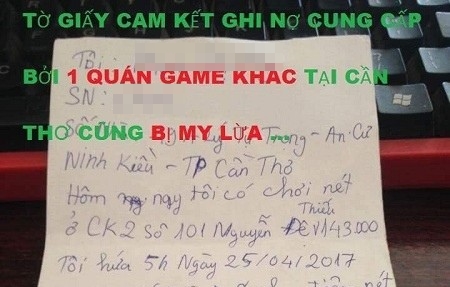 TỜ GIẤY CAM KẾT GHI NỢ CUNG CẤP
Tôi:
BỞI 1 QUÁN GAME KHÁC TẠI CẦN
SN:
THƠ CŨNG BỊ MY LỪA ...
Số Trọng - An Cư
Ninh Kiều - TP Cần Thơ
Hôm nay tôi có chơi nét
Thiếu
ở CK2 Số 101 Nguyễn Đệ 143.000
Tôi hứa 5h Ngày 25/04/2017